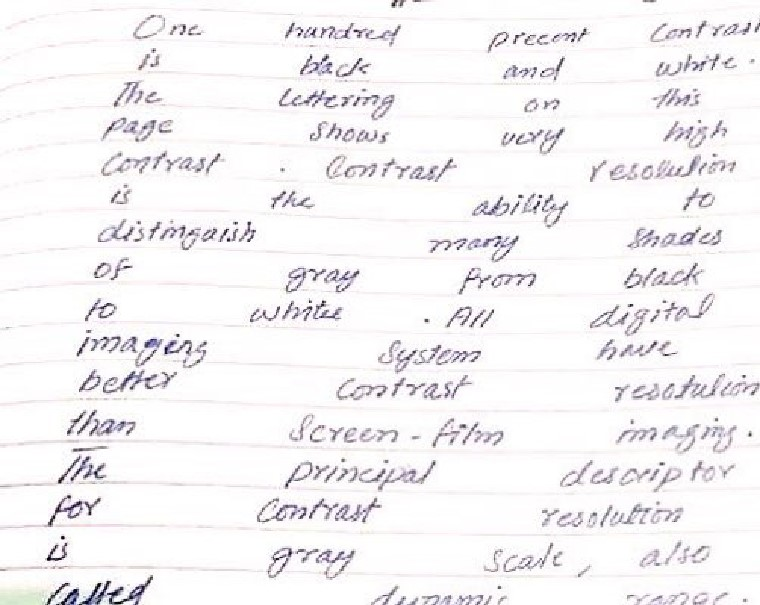 One hundred precent Contrast
is black and white.
The lettering on this
page shows very high
Contrast . Contrast resolution
is the ability to
distingaish many shades
of gray from black
to white . All digital
imaging System have
better Contrast resolution
than Screen-film imaging.
The principal descriptor
for Contrast resolution
is gray Scale, also
Called dynamic range.